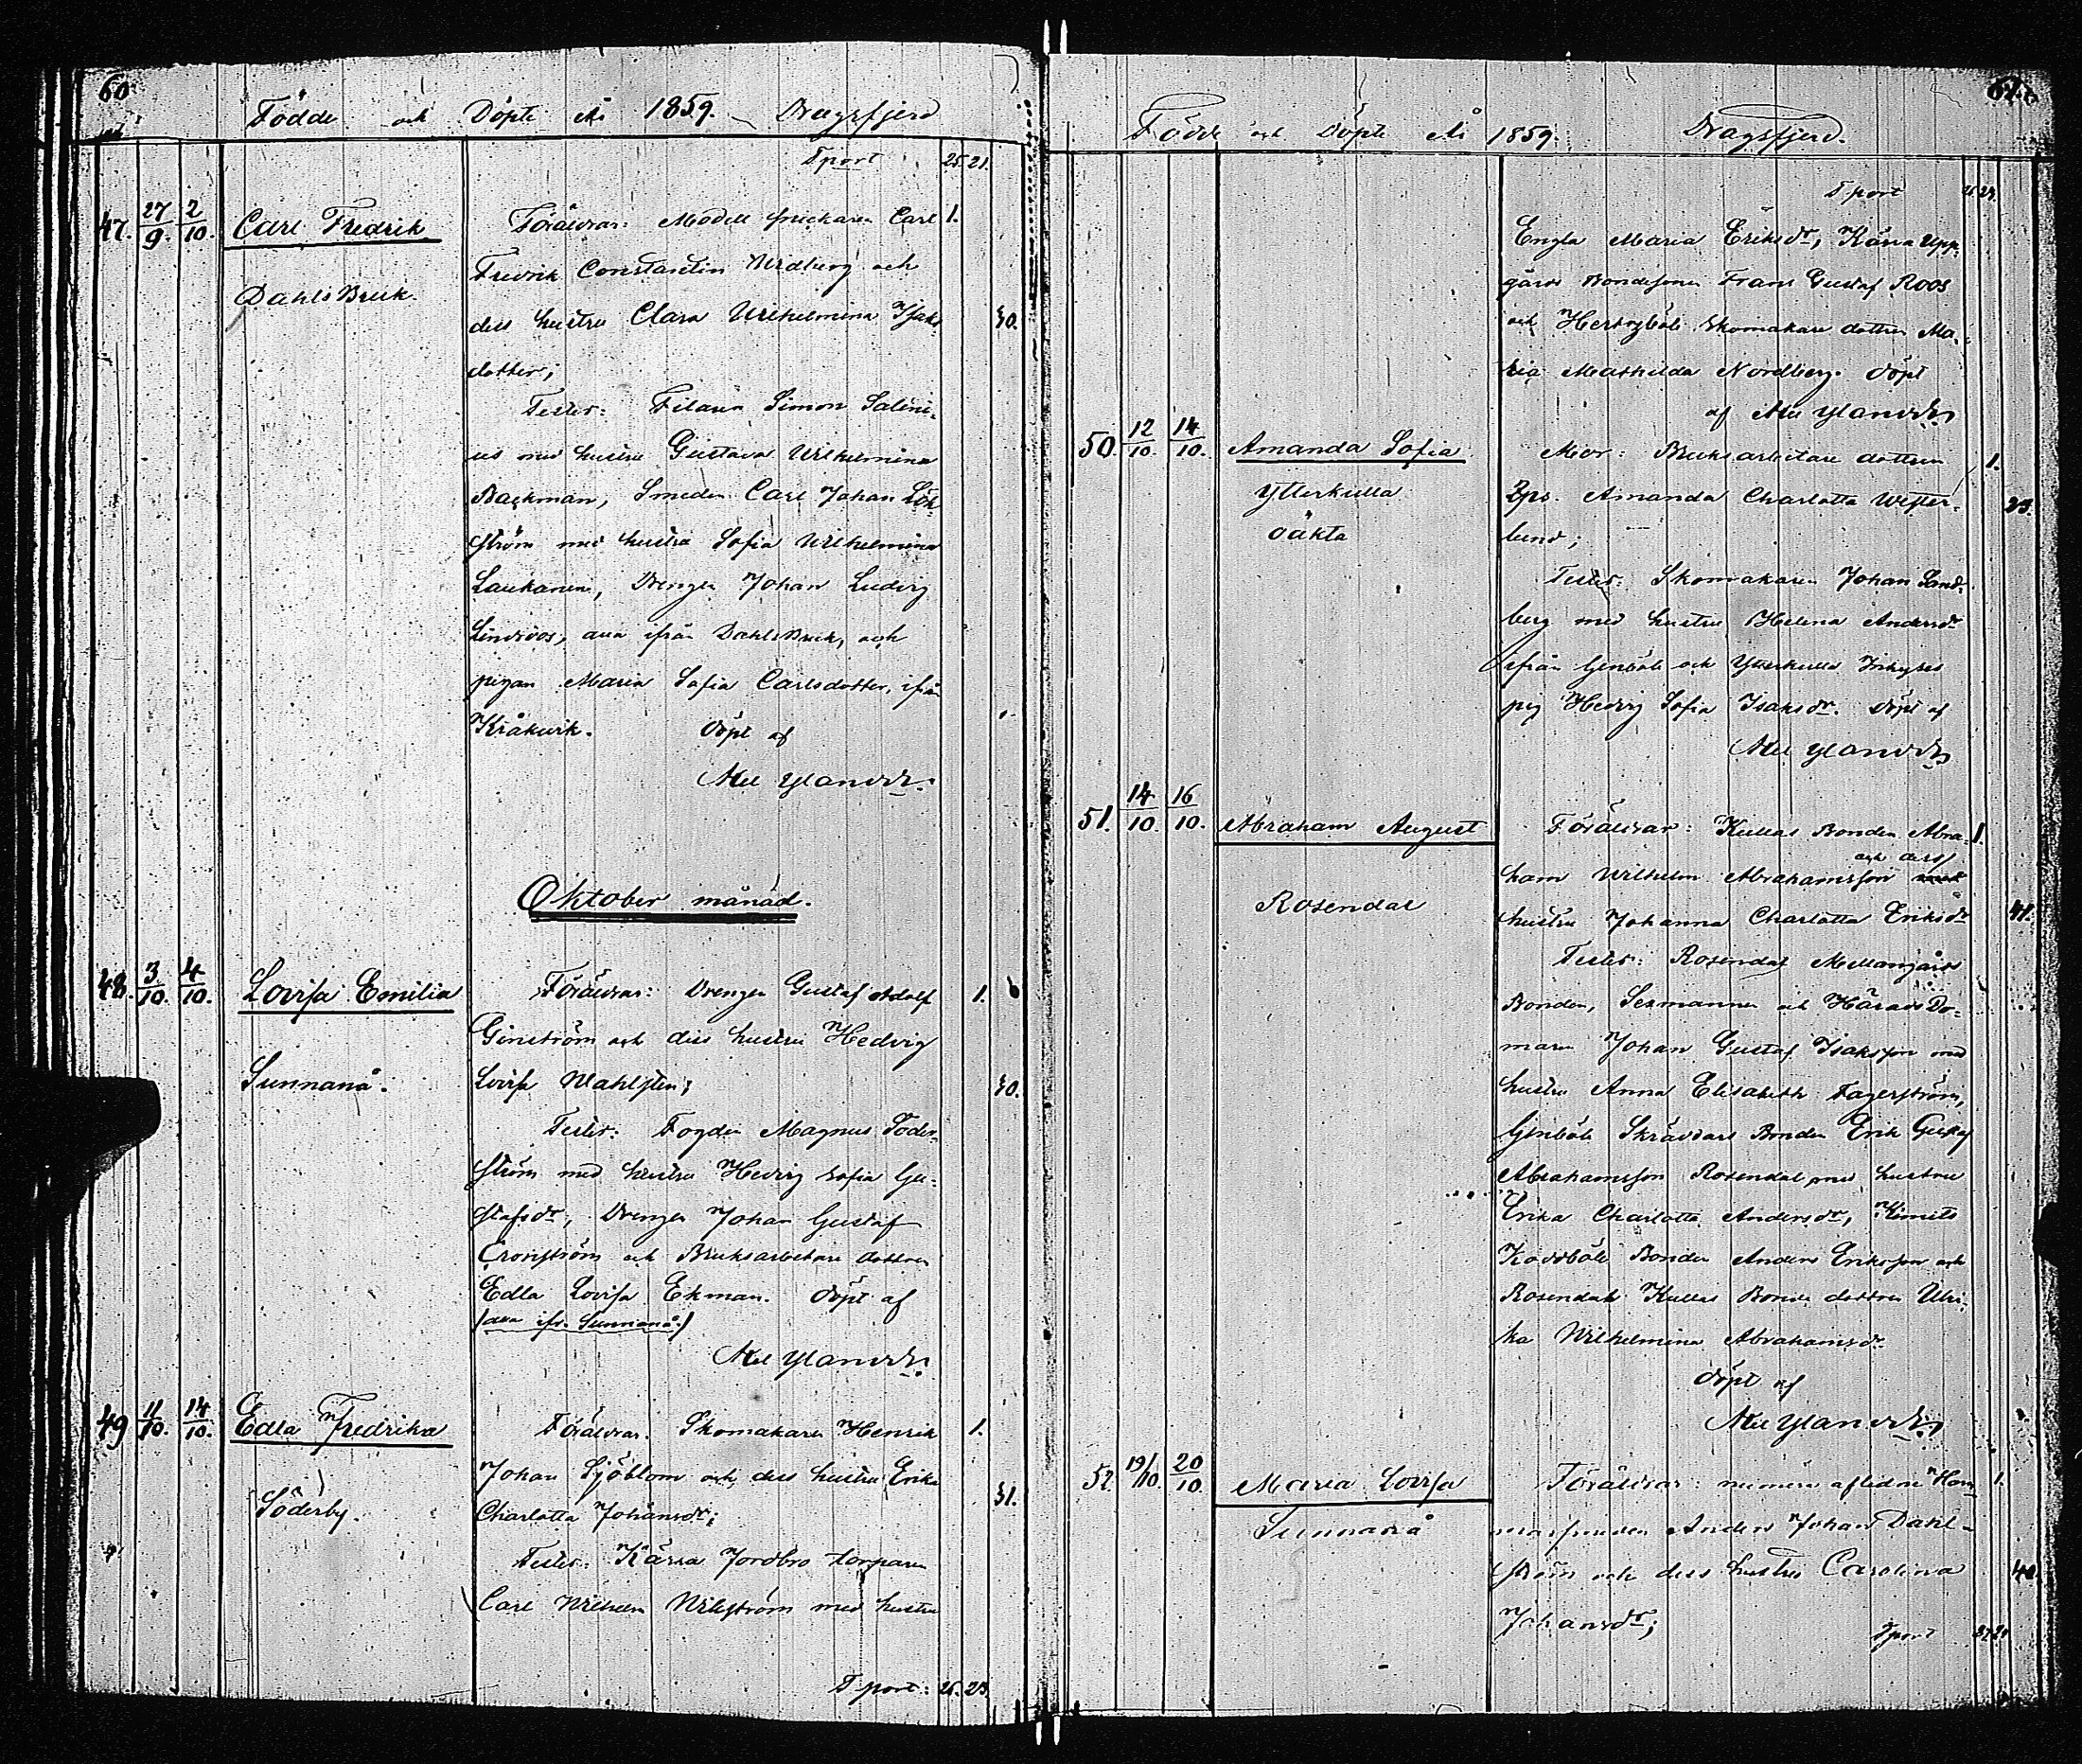 60
Födde och Döpte År 1859. Dragsfjerd
Tport 25 21.
47. 27/9. 2/10. Carl Fredrik
Dahls Bruk.
Föräldrar: Modell snickaren Carl 1.
Fredrik Constantin och
dess hustru Clara Wilhelmina Isaks 30.
dotter;
Testes: Filaren Simon Salini-
us med hustru Gustava Wilhelmina
Backman, Smeden Carl Johan Lök-
ström med hustru Sofia Wilhelmina
Laukanen, Drengen Johan Ludvig
Lindroos, alla ifrån Dahls Bruk, och
pigan Maria Sofia Carlsdotter, ifrån
Kråkvik. Döpt af
Axel Ylander.
Oktober månad.
48. 3/10. 4/10. Lovisa Emilia
Sunnanå.
Föräldrar: Drengen Gustaf Adolf 1.
Ginström och dess hustru Hedvig
Lovisa Wahlsten; 30.
Testes: Fogden Magnus Söder-
ström med hustru Hedvig Sofia Gu-
stafsdr, Drengen Johan Gustaf
Cronström och Bruksarbetare dottren
Edla Lovisa Ekman. Döpt af
(alla ifr. Sunnanå.)
Axel Ylander.
49 11/10. 14/10. Edla Fredrika
Söderby.
Föräldrar. Skomakaren Henrik 1.
Johan Sjöblom och dess hustru Erika
Charlotta Johansdr; 31.
Testes: Kärra Jordbro torparen
Carl Wilhelm Wikström med hustru
Tport: 26. 23.
61.
Födde och Döpte År 1859. Dragsfjerd.
Tport 26 23.
Engla Maria Eriksdr, Kärra Upp-
gårds Bondesonen Frans Gustaf Roos
och Hertsböle Skomakare dottren Ma-
ria Mathilda Nordberg. Döpt
af Axel Ylander
50. 12/10. 14/10. Amanda Sofia
Ytterkulla
oäkta
Mor: Bruksarbetare dottren 1.
Amanda Charlotta Wester- 23.
lund;
Testes: Skomakaren Johan Sand-
berg med hustru Helena Andersdr
ifrån Genböle och Ytterkulla Inhyses
pig Hedvig Sofia Isaksdr. Döpt af
Axel Ylander
51. 14/10. 16/10. Abraham August
Rosendal
Föräldrar: Kullas Bonden Abra- 1.
och dess
ham Wilhelm Abrahamsson
hustru Johanna Charlotta Eriksdr 41.
Testes: Rosendal Mellangårds
Bonden, Sexmannen och Härads Do-
maren Johan Gustaf Isaksson med
hustru Anna Elisabeth Fagerström,
Genböle Skräddars Bonden Erik Gustaf
Abrahamsson Rosendal med hustru
Erika Charlotta Andersdr, Kimito
Bonden Anders Eriksson och
Rosendals Kullas Bonde dottren Ulri-
ka Wilhelmina Abrahamsdr
Döpt af
Axel Ylander
52. 19/10. 20/10. Maria Lovisa
Sunnanå
Föräldrar: numera aflidne Ham- 1.
marsmeden Anders Johan Dahl-
ström och dess hustru Carolina 40.
Johansdr;
Tport 27 25